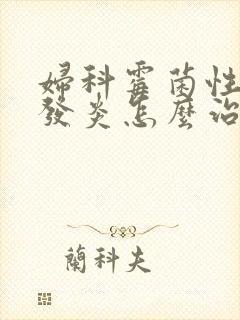 婦科霉菌性
發炎怎麼治
蘭科夫